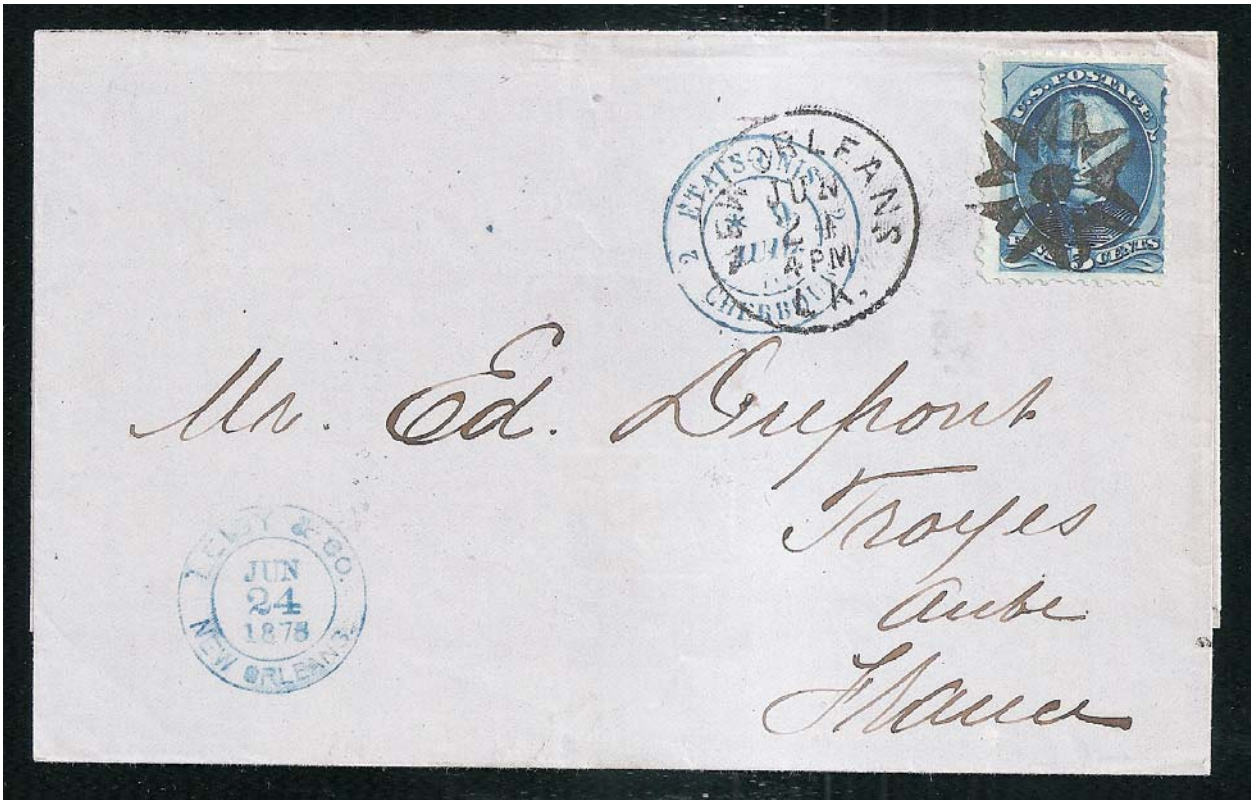 U.S. POSTAGE
5 CENTS
NEW ORLEANS
JUN
24
4 PM
LA.
2 ETATS-UNIS
CHERBOURG
Mr. Ed. Dupont
Troyes
Aube
France
& CO.
JUN
24
1878
NEW ORLEANS